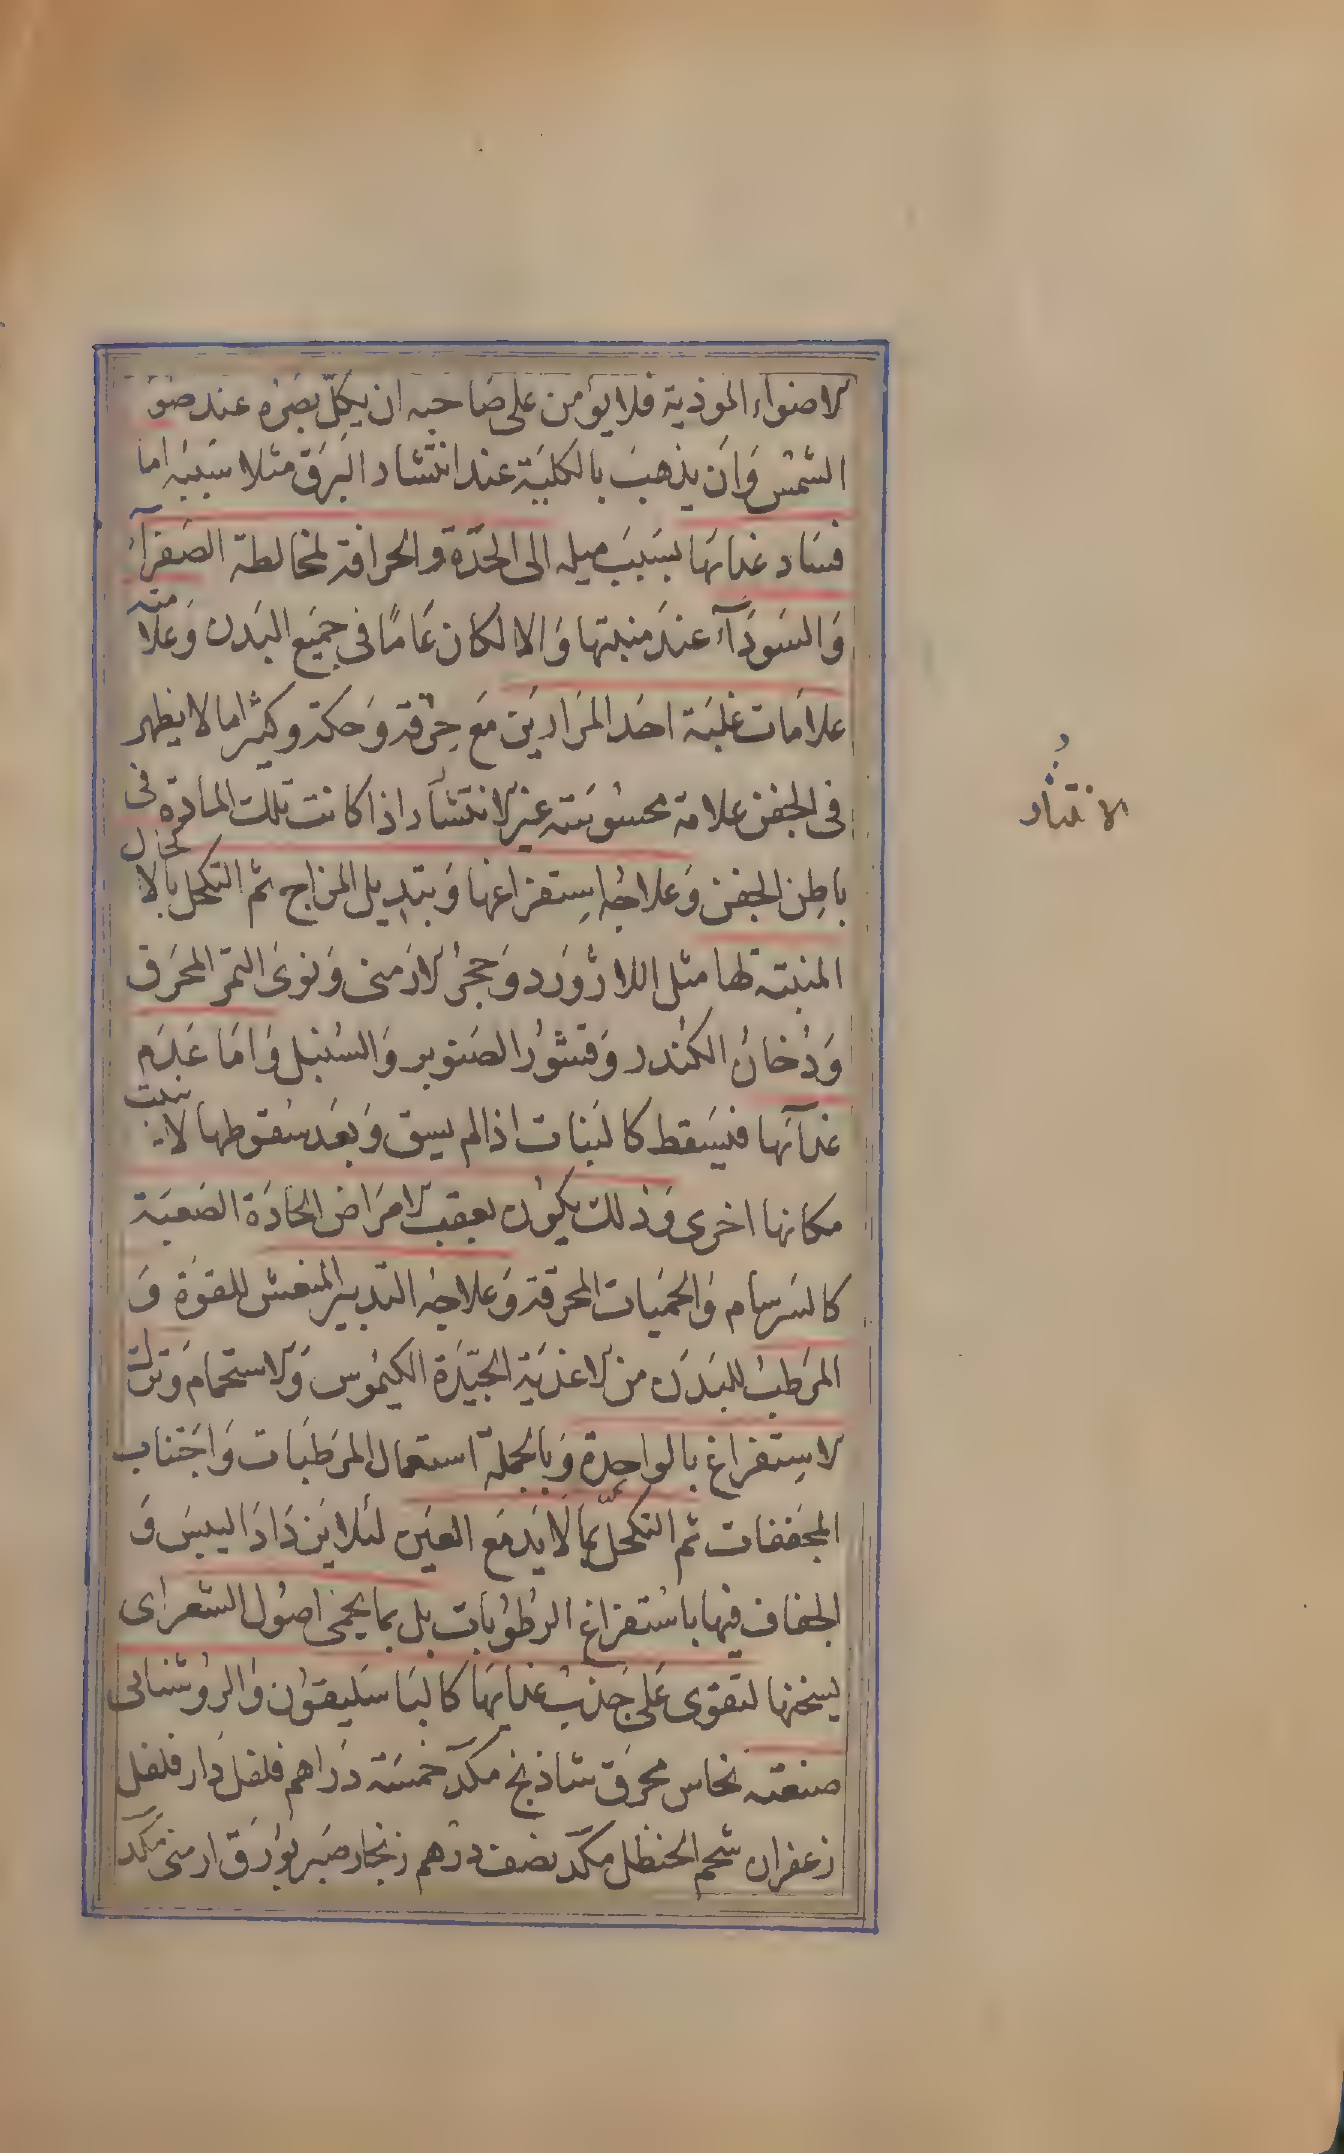 الاضواء الموذية فلا يؤمن على صاحبه ان يكلّ بصره عند ضوَ
الشمس وَان يذهبَ بالكليَة عند انتشار البَرق مثلا سَببُه اما
فسَاد غذائها بسَبَب ميله الى الحدّة والحرافة لمخالطة الصَفرآءُ
وَالسَودَآء عندَ منبتها وَالا لكان عَامًا فى جمَيع البَدن وَعلامته
علامَات غلبَة احَد المرَارين مَع حرقة وَحكة وكثيرا ما لا يظهر
فى الجفن علامة محسُوسَة غير الانتشار اذا كانت تلك المادة فى
باطِن الجفن وَعلاجُه اِستفراغها وَتبديل المزاج ثم التكحل بالاكحال
المنبتة لها مثل اللازوَرد وَحجرُ الارمنى وَنوىَ التمر المحرَق
وَدُخانُ الكُندر وَقشوُر الصَنوبر وَالسُنبل وَامَا عَدَم
غذآئها فيسَقط كالنَبات اذا لم يسق وَبعَد سقوطها لا ينبت
مكانها اخرى وَذلك يكون بعقب الامرَاض الحَادَة الصَعبَة
كالسَرسام وَالحُميات المحرقة وَعلاجُه التدبير المنعش للقوَة وَ
المرَطبُ للبَدَن من الاغذيَة الجَيّدَة الكيمُوس وَالاستحمام وَترك
الاِستفراغ بالواحِدة وَبالجملة استعمال المرَطبَات وَاجَتناب
المجَففات ثم التكحل بما لا يدَمَع العَين لئلا يزدَادَ اليبسَ وَ
الجفاف فيها باسُتفراغ الرطُوُبات بل بما يحمى اصُول الشعر اى
يسخنها لتقوى عَلى جَذب غذائها كالبَاسَليقوُن وَالروُشنائى
صنعته نحاس محرَق شاذنج مكدَ خمسَة دَراهم فلفل دَار فلفل
زعفران شحم الحَنظل مكدَ نصف درهم زنجار صَبر بوُرَق ارمنى مكد
الانتشار